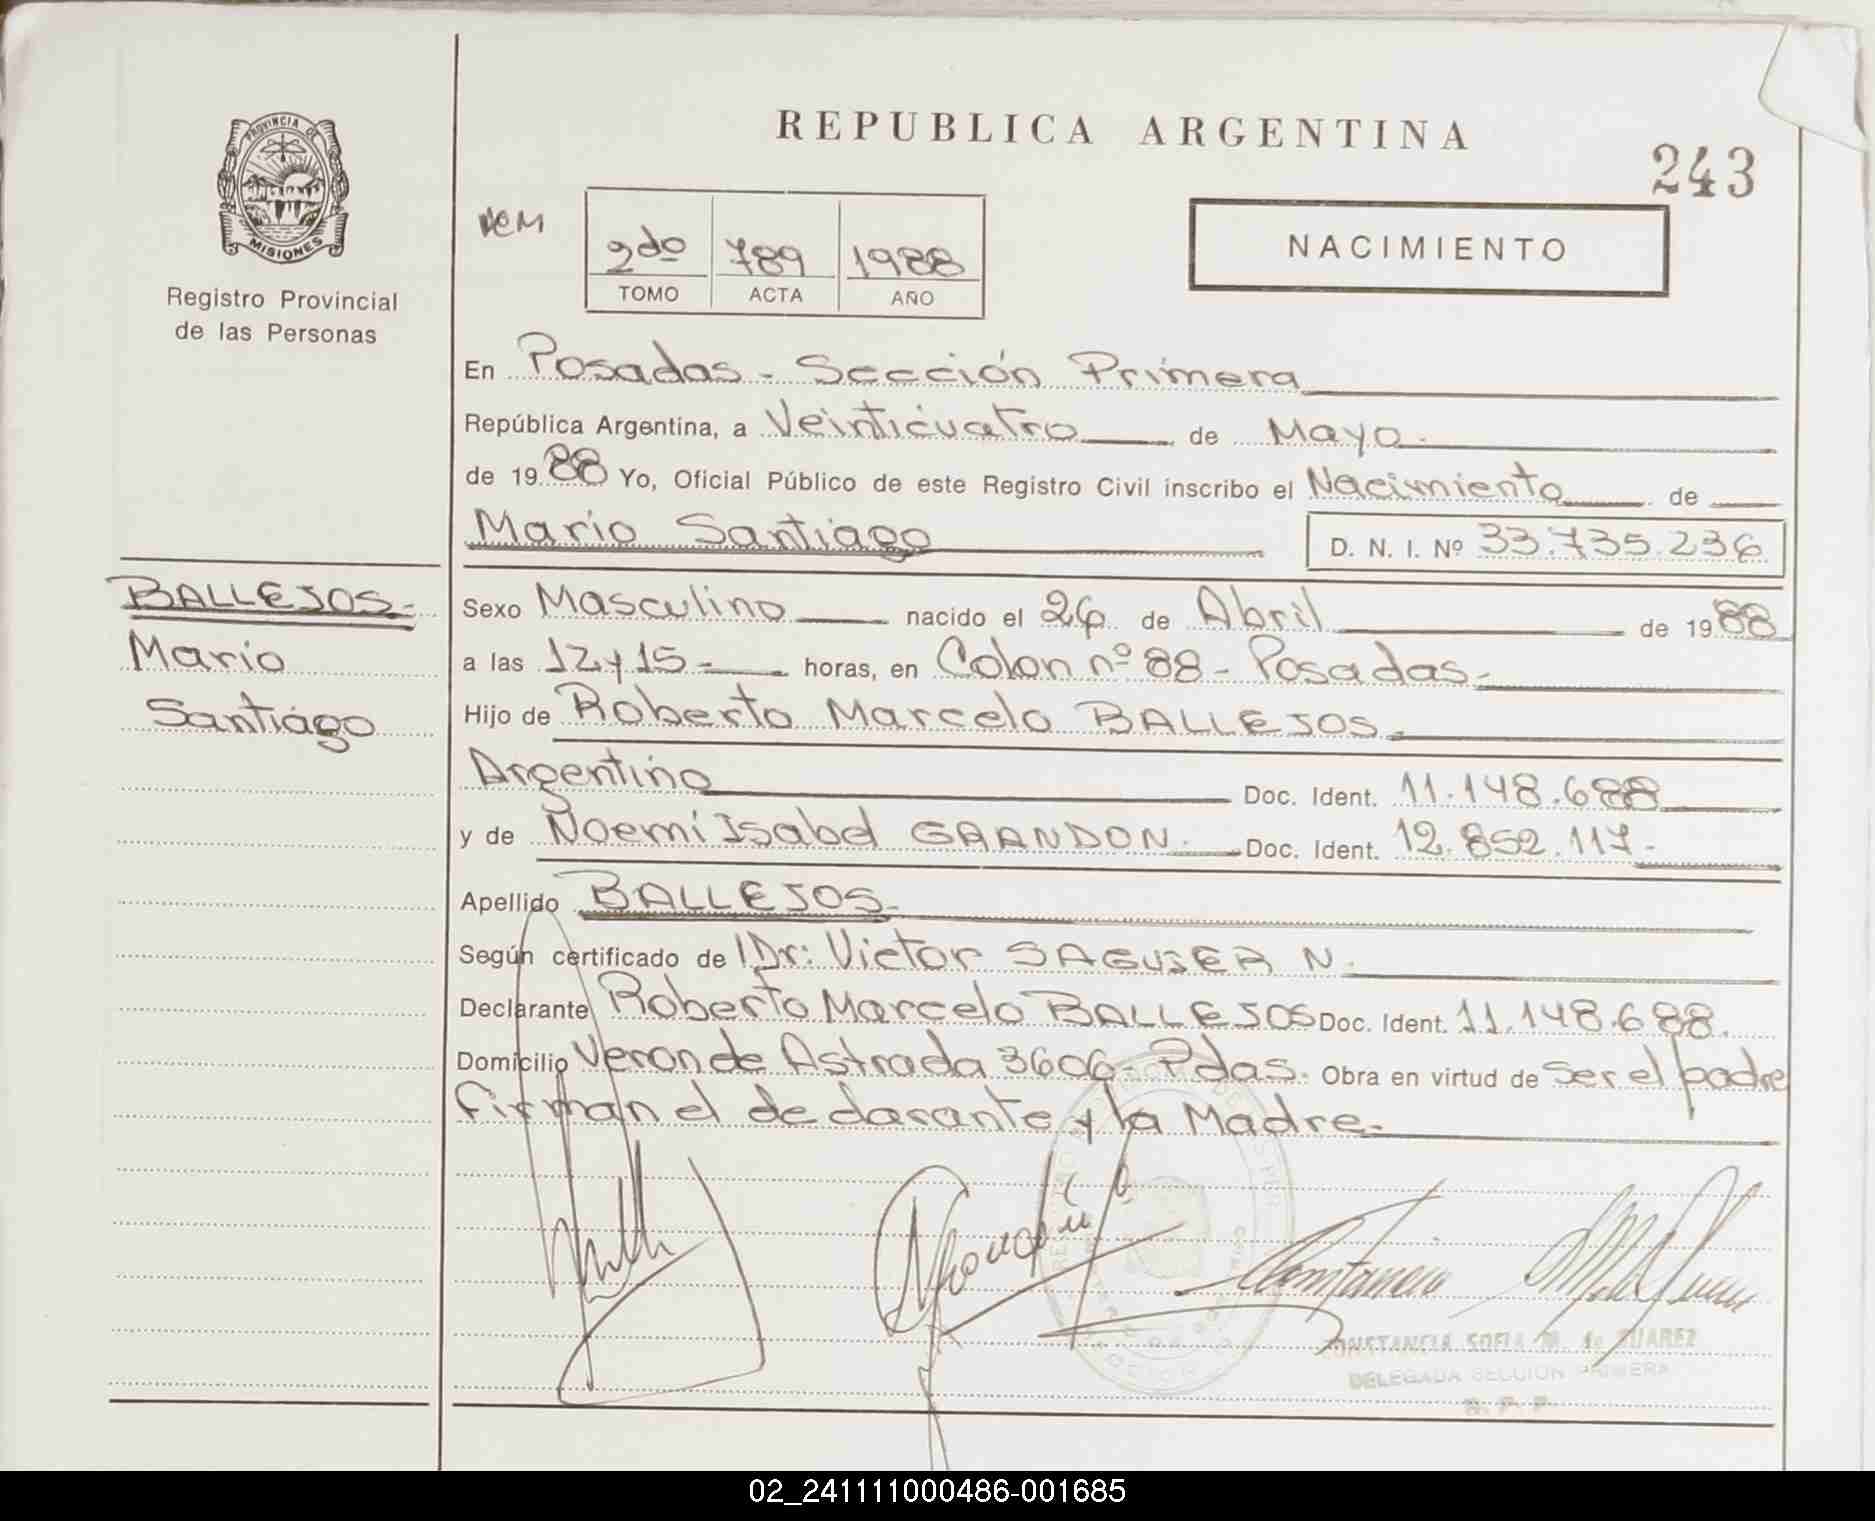 PROVINCIA DE
MISIONES
Registro Provincial
de las Personas
BALLEJOS.-
Mario
Santiago
REPUBLICA ARGENTINA
243
2do 789 1988
TOMO ACTA AÑO
NACIMIENTO
En Posadas - Sección Primera
República Argentina, a Veinticuatro de Mayo.
de 1988 Yo, Oficial Público de este Registro Civil inscribo el Nacimiento de
Mario Santiago D. N. I. Nº 33.735.236
Sexo Masculino nacido el 26 de Abril de 1988
a las 12 y 15- horas, en Colon nº 88 - Posadas.-
Hijo de Roberto Marcelo BALLEJOS.
Argentino Doc. Ident. 11.148.688
y de Noemi Isabel GRANDON. Doc. Ident. 12.852.117-
Apellido BALLEJOS.-
Según certificado de Dr: Victor SAGUSER N.
Declarante Roberto Marcelo BALLEJOS Doc. Ident. 11.148.688.
Domicilio Veron de Astrada 3606- Pdas. Obra en virtud de ser el padre
firman el declarante y la Madre.-
CONSTANCIA SOFIA M. de SUAREZ
DELEGADA SECCION PRIMERA
R. P. P.
02_241111000486-001685